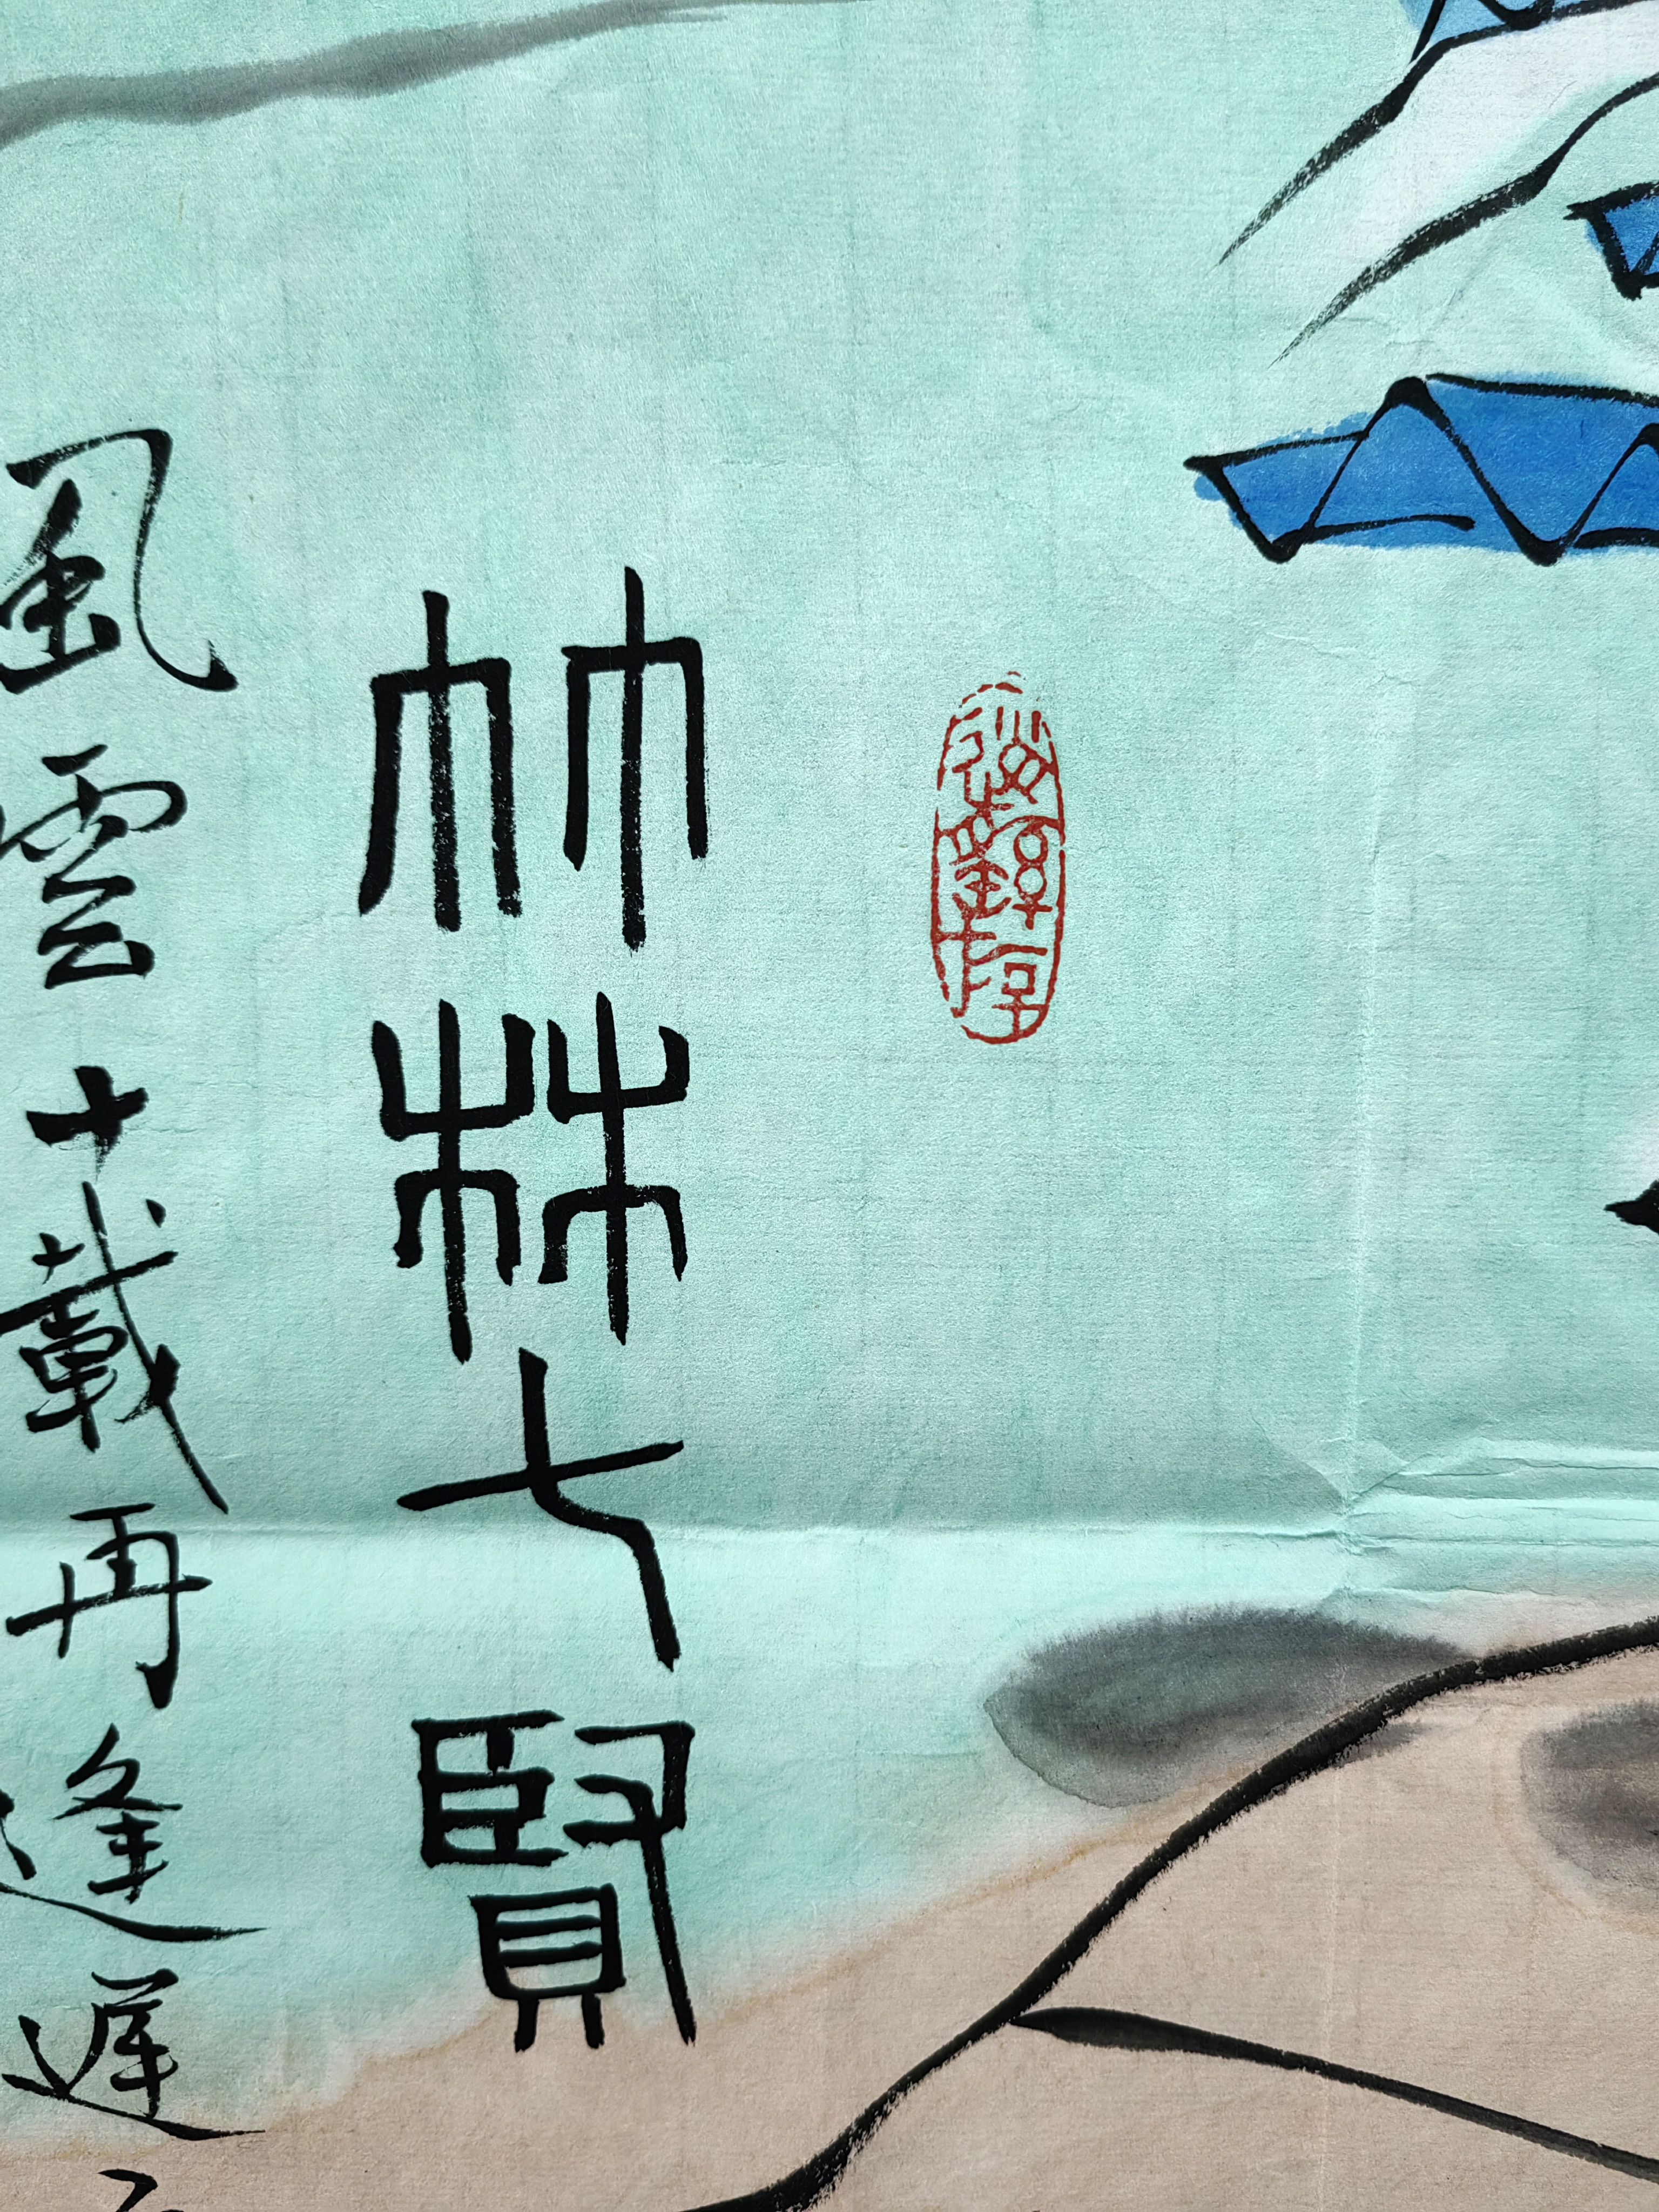 竹林七賢
風雲十載再逢遲